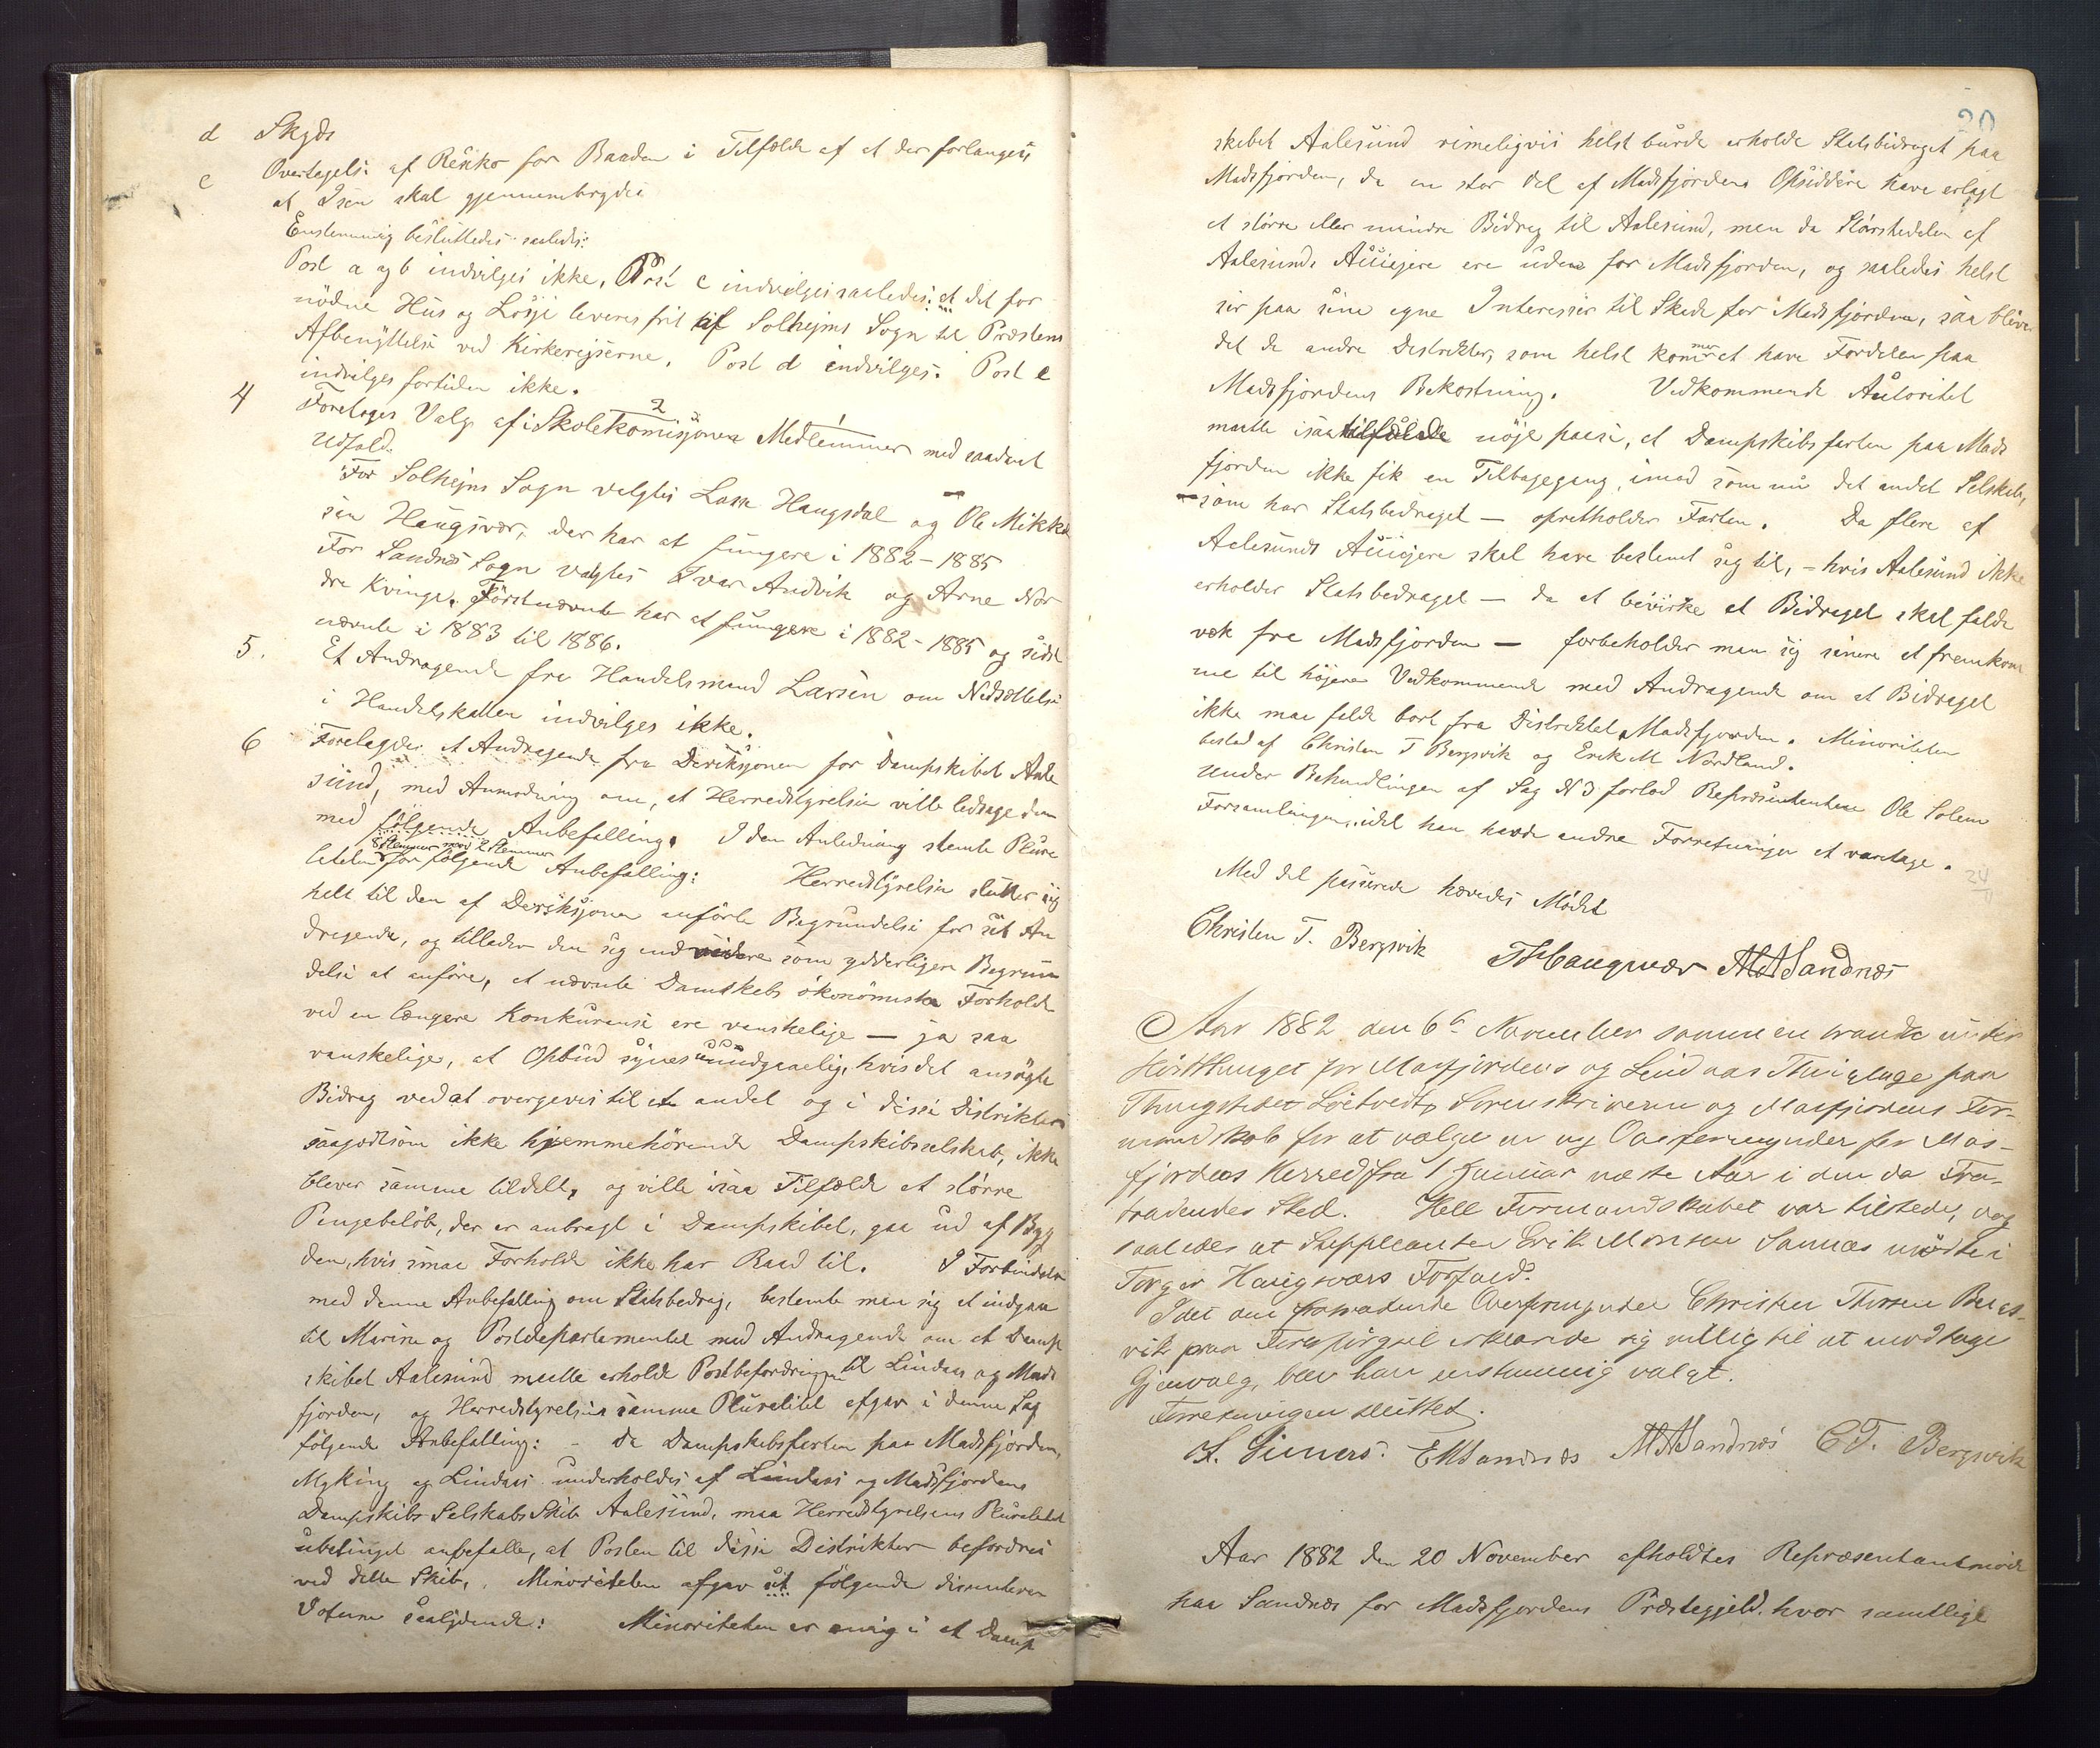 d Skyds
e Overtagelse af Resiko for Baaden i Tilfælde af at der forlanges
at Isen skal gjennembrydes
Enstemmig besluttedes saaledes:
Post a og b indvilges ikke. Post c indvilges saaledes: at det for
nödne Hus og Losje leveres frit af Solhejms Sogn til Præstens
Afbenyttelse ved Kirkerejserne. Post d indvilges. Post e
indvilges fortiden ikke.
4 Foretages Valg af i Skolekomisjonen Medlemmer med saadant
2 1
Udfald.
For Solhejms Sogn valgtes Lasse Haugsdal og Ole Mikkel
sen Haugsvær, der har at fungere i 1882-1885
For Sandnes Sogn valgtes Ivar Andvik og Arne Nor
dre Kvinge. Förstnævnte har at fungere i 1882-1885 og sidst
nævnte i 1883 til 1886.
5. Et Andragende fra Handelsmand Larsen om Nedsættelse
i Handelskatten indvilges ikke.
6 Foretages et Andragende fra Dereksjonen for Dampskibet Aale
sund, med Anmodning om, at Herredstyrelsen ville ledsage den
med følgende Anbefalling. I den Anledning stemte Plura
8 Stemmer mod 2 Stemmer
leteten for følgende Anbefalling: Herredstyrelsen slutter sig
helt til den af Dereksjonen anförte Begrundelse for sit An
dragende, og tillader den sig endvidere som ydderligere Begrun
delse at anföre, at nævnte Damskebs ökonomiske Forholde
ved en længere Konkuranse ere vanskelige — ja saa
vanskelige, at Opbud synes uundgaaelig, hvis det ansögte
Bidrag ved at overgives til et andet og i disse Distrikter
saagodtsom ikke hjemmehörende Dampskibsselskab, ikke
bliver samme tildelt, og ville isaa Tilfælde et större
Pengebelöb, der er anbragt i Dampskibet, gaa ud af Byg
den, hvis smaa Forholde ikke har Raad til. I Forbindelse
med denne Anbefalling om Statsbedrag, bestemte man sig at indgaa
til Marine og Postdepartementet med Andragende om at Damp
skibet Aalesund maatte erholde Postbefordringen til Lindaas og Mads
fjorden, og Herredstyrelsens samme Pluralitet afgav i denne Sag
følgende Anbefalling: - Da Dampskibsfarten paa Madsfjorden,
Myking og Lindaas underholdes af Lindaas og Madsfjordens
Dampskibs Selskabs Skib Aalesund, maa Herredstyrelsens Pluralitet
ubetinget anbefalle, at Posten til disse Distrikter befordres
ved dette Skib. Minoriteten afgav sit følgende disenterende
Votum saalydende: Minoriteten er enig i at Damp
20
skibet Aalesund rimeligvis helst burde erholde Statsbidraget paa
Madsfjorden, da en stor Del af Madsfjordens Opsiddere have erlagt
et större eller mindre Bidrag til Aalesund, men da Störstedelen af
Aalesunds Auiejere ere uden for Madsfjorden, og saaledes helst
ser paa sine egne Interesser til Skade for Madsfjorden, saa bliver
det de andre Distrikter, som helst kommer at have Fordelen paa
Madsfjordens Bekostning. Vedkommende Autoritet
matte isaa tilfælde nöje passe, at Dampskibsfarten paa Mads
fjorden ikke fik en Tilbagegang, imod som nu det andet Selskab,
— som har Statsbedraget — opretholder Farten. Da flere af
Aalesunds Auiejere skal have bestemt sig til, - hvis Aalesund ikke
erholder Statsbedraget — da at bevirke at Bidraget skal falde
væk fra Madsfjorden — forbeholder man sig senere at fremkom
me til höjere Vedkommende med Andragende om at Bidraget
ikke maa falde bort fra Distriktet Madsfjorden. Minoriteten
bestod af Christen T Bergsvik og Erik M Nordland.
Under Behandlingen af Sag N 3 forlod Repræsentanten Ole Solem
Forsamlingen, idet han havde andre Forretninger at varetage.
24
Med det passerede hævedes Mödet
Christen T. Bergsvik THaugsvær MASandnæs
Aar 1882 den 6te November sammentraadte under
Hösttinget for Masfjordens og Lindaas Thinglage paa
Thingstedet Lötvedt, Sorenskriveren og Masfjordens For-
mandskab for at vælge en ny Overformynder for Mas-
fjordens Herred fra 1 Januar næste Aar i den da Fra-
trædendes Sted. Hele Formandskabet var tilstede, dog
saaledes at Suppleanten Erik Monsen Sannæs mödte i
Torger Haugsværs Forfald.
Idet den fratrædende Overformynder Christen Thorsen Bergs-
vik paa Forespörgsel erklærede sig villig til at modtage
Gjenvalg, blev han enstemmig valgt.
Forretningen sluttet.
EMSandnæs MASandnæs C T. Bergsvik
Aar 1882 den 20 November afholdtes Repræsentantmöde
paa Sandnæs for Madsfjordens Præstegjeld, hvor samtlige